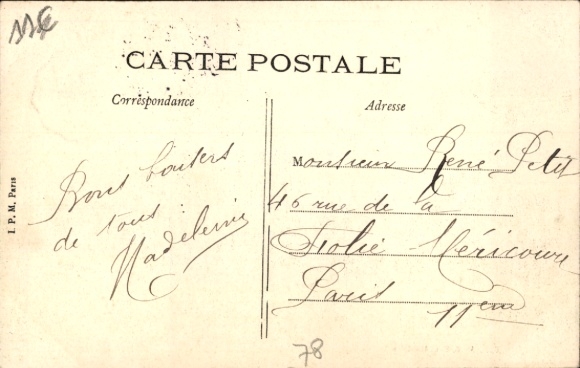 CARTE POSTALE
Correspondance
Adresse
I. P. M. Paris
Bons baisers
de tous
Madeleine
Monsieur René Petit
46 rue de la
Folie Méricourt
Paris 11eme
78